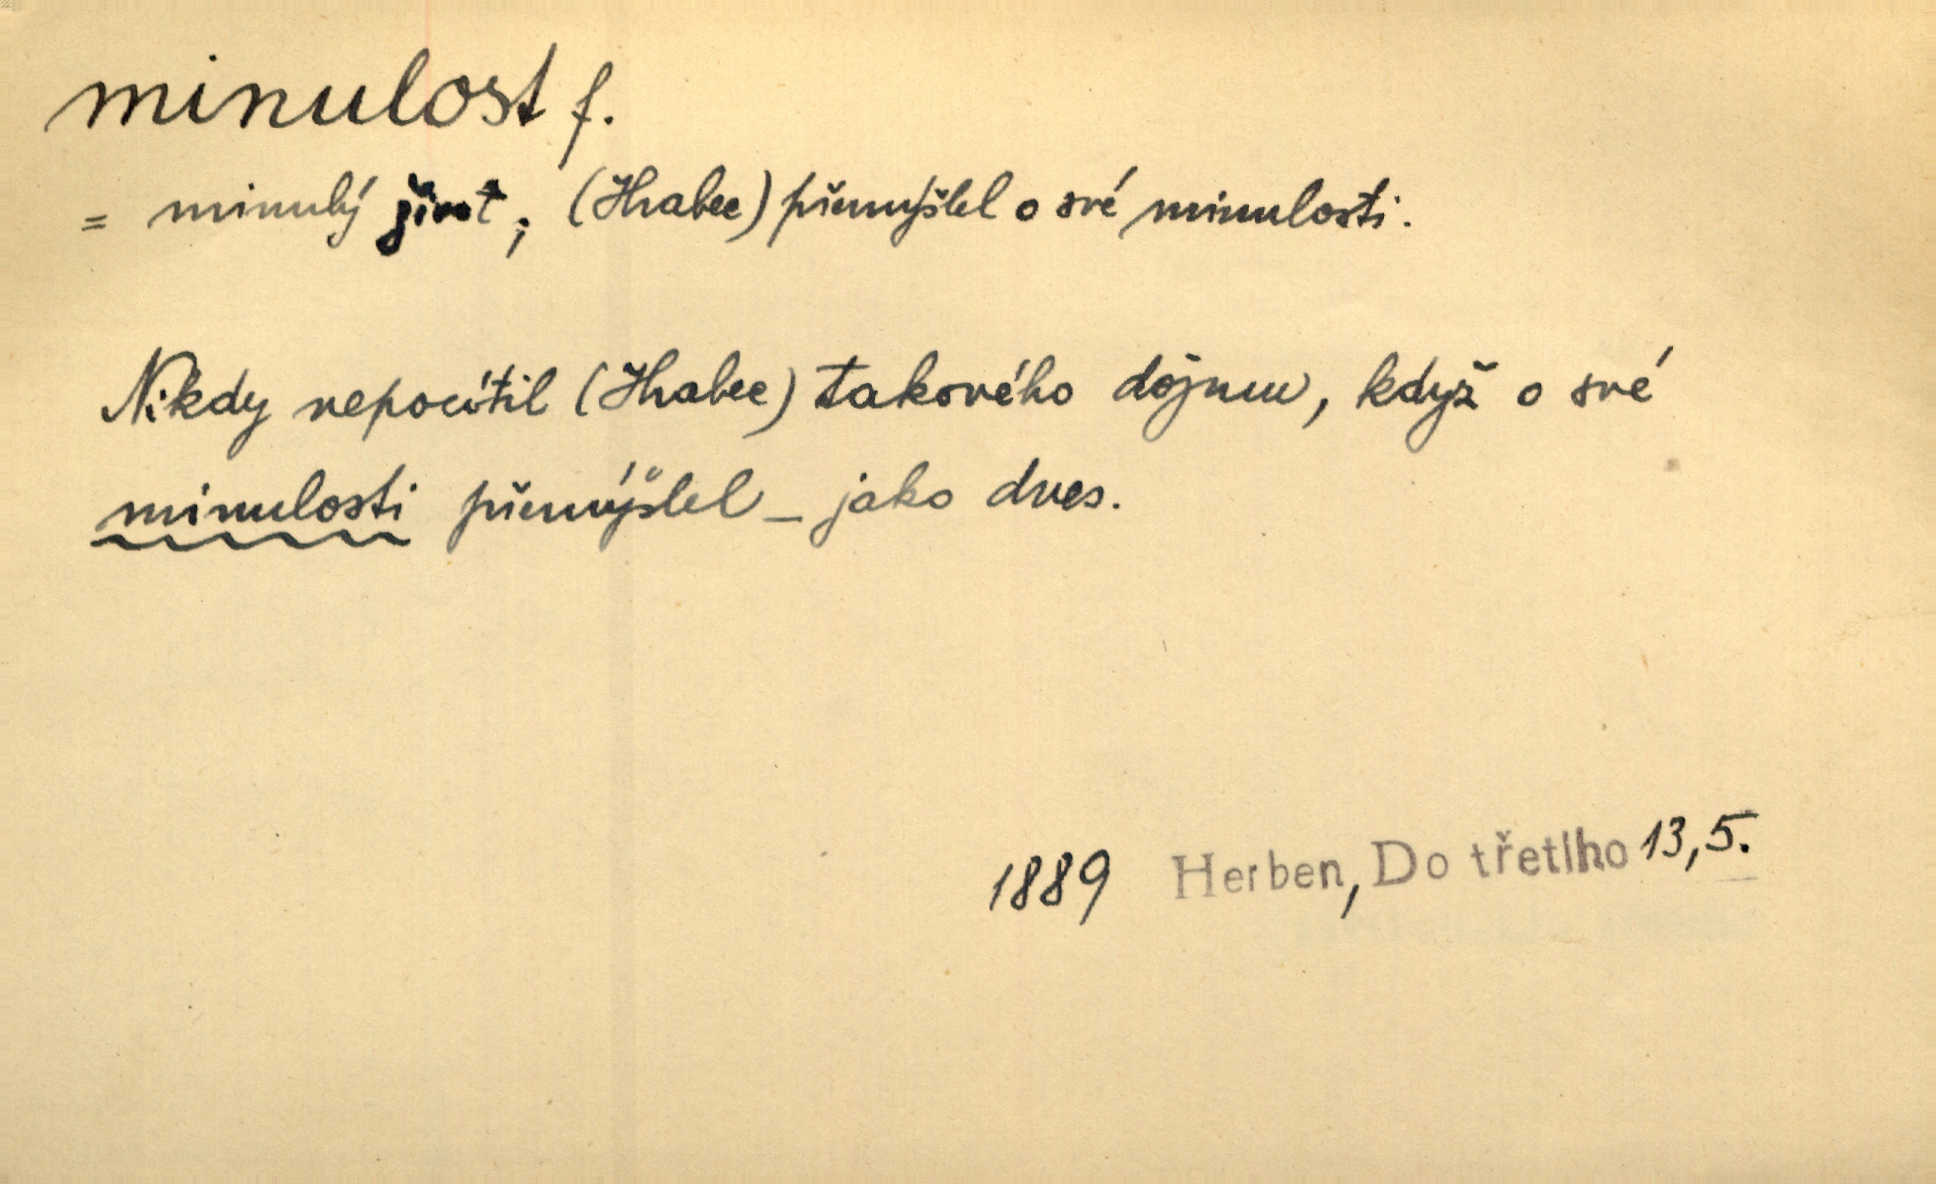 minulost f.
= minulý život; (Hrabec) přemyšlel o své minulosti.
Nikdy nepocítil (Hrabec) takového dojmu, když o své
minulosti přemýšlel – jako dnes.
1889 Herben, Do třetího 13,5.